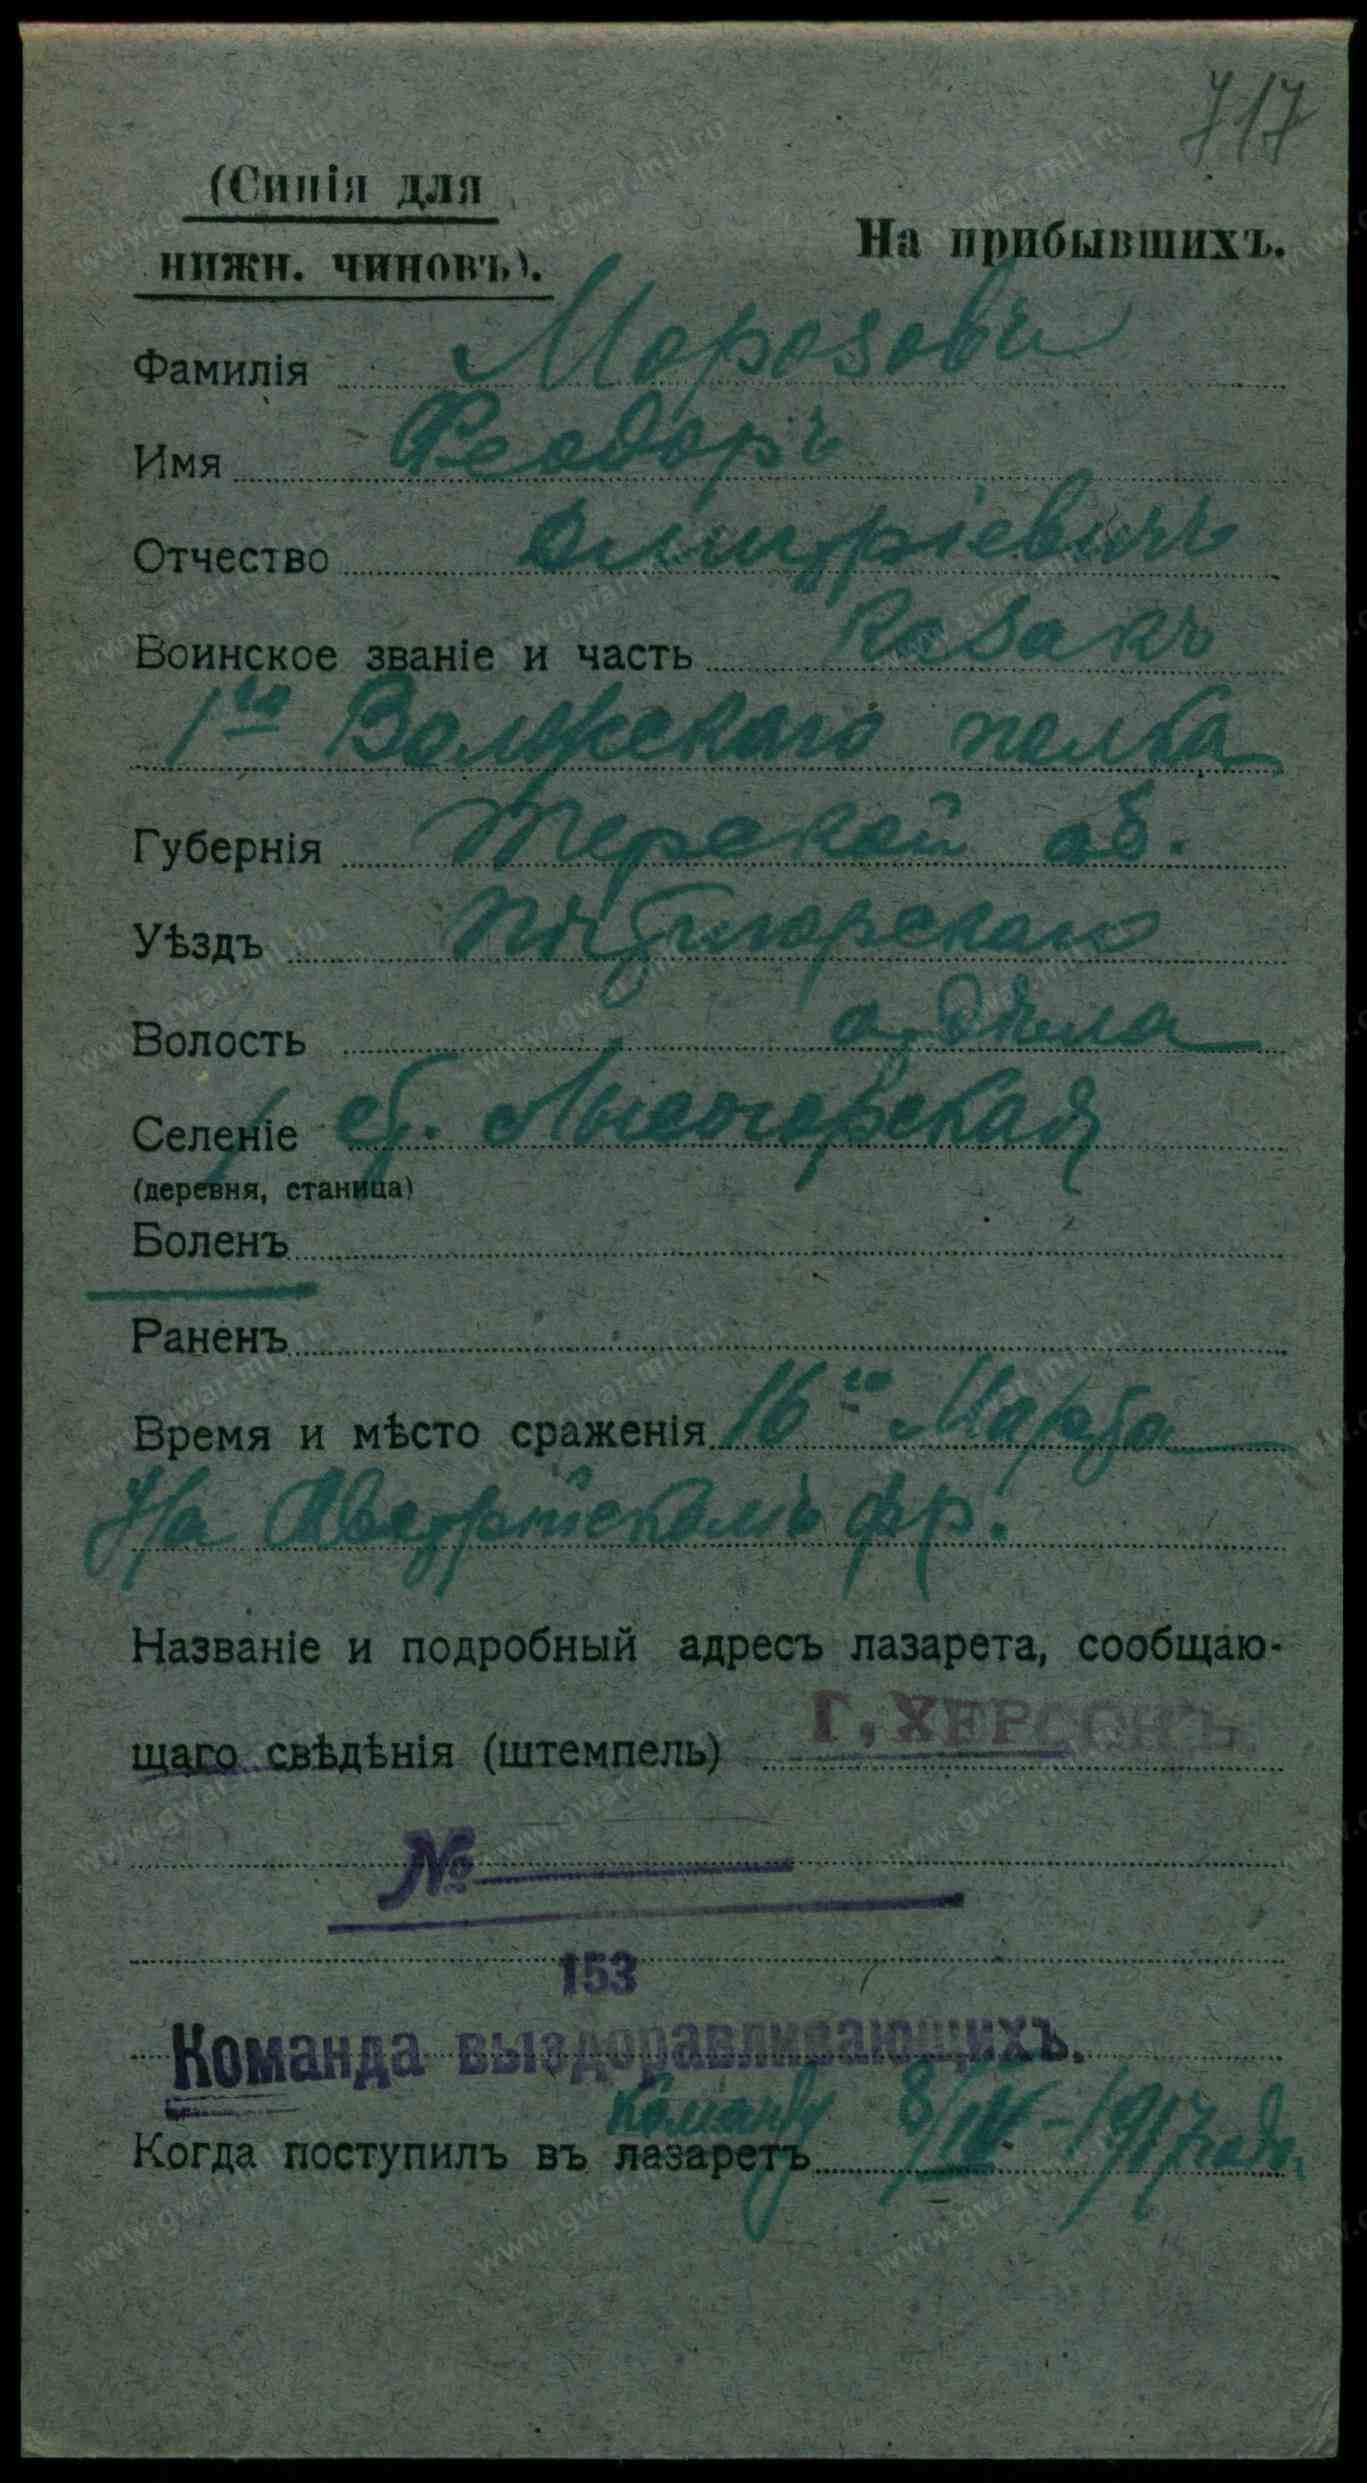 717
(Синія для
нижн. чиновъ).
На прибывшихъ.
Фамилія Морозовъ
Имя Феодоръ
Отчество Дмитріевичъ
Воинское званіе и часть Казакъ
1го Волжскаго полка
Губернія Терской об.
Уѣздъ Пятигорскаго
Волость отдѣла
Селеніе ст. Лысогорская
(деревня, станица)
Боленъ
Раненъ
Время и мѣсто сраженія 16го Марта
На Австрійскомъ фр.
Названіе и подробный адресъ лазарета, сообщаю-
щаго свѣдѣнія (штемпель) Г. ХЕРСОНЪ.
№
153
Команда выздоравливающихъ.
команду
Когда поступилъ въ лазаретъ 8/IV-1917 года.
www.gwar.mil.ru